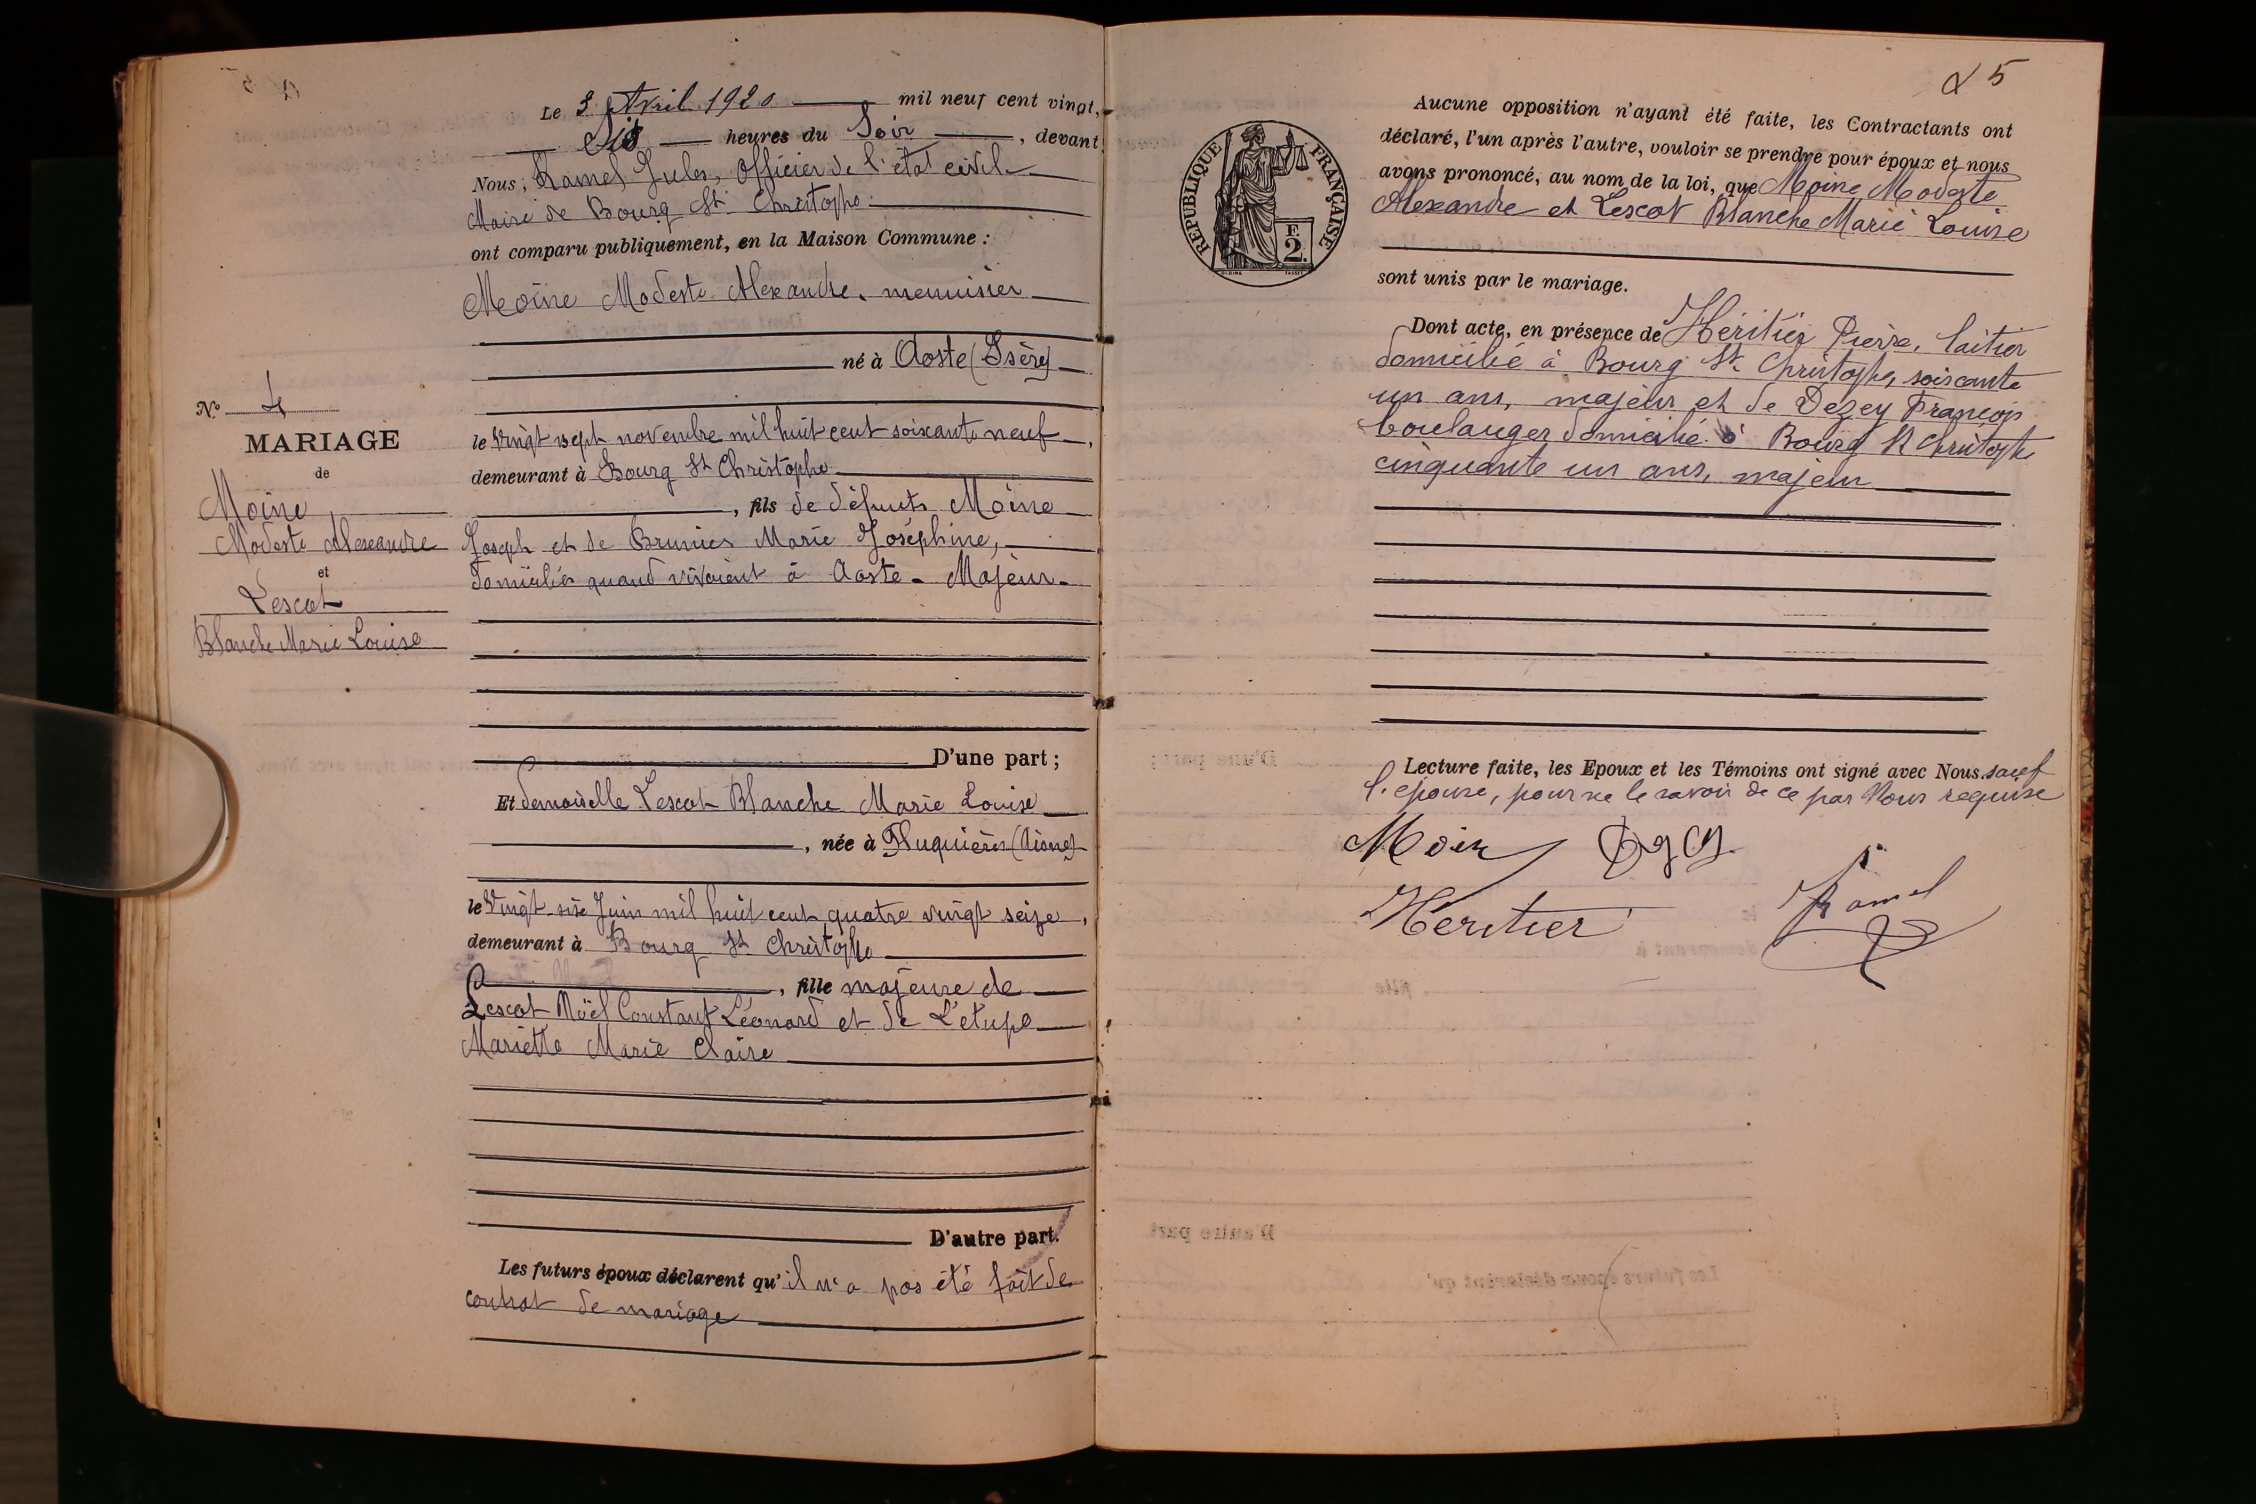 Le 3 Avril 1920 mil neuf cent vingt,
Six heures du Soir, devant
Nous, Ramel Jules, Officier de l'état civil
Maire de Bourg St Christophe
ont comparu publiquement, en la Maison Commune :
Moine Modeste Alexandre, menuisier
né à Aoste (Isère)
le Vingt sept novembre mil huit cent soixante neuf,
demeurant à Bourg St Christophe
, fils de défunts Moine
Joseph et de Brunier Marie Joséphine,
domiciliés quand vivaient à Aoste - Majeur -
No 4
MARIAGE
de
Moine
Modeste Alexandre
et
Lescot
Blanche Marie Louise
D'une part ;
Et demoiselle Lescot Blanche Marie Louise
, née à Fluquières (Aisne)
le Vingt-six Juin mil huit cent quatre vingt seize,
demeurant à Bourg St Christophe
, fille majeure de
Lescot Noël Constant Léonard et de L'étupe
Mariette Marie Claire
D'autre part.
Les futurs époux déclarent qu'il n'a pas été fait de
contrat de mariage
5
REPUBLIQUE FRANÇAISE
2 F.
Aucune opposition n'ayant été faite, les Contractants ont
déclaré, l'un après l'autre, vouloir se prendre pour époux et nous
avons prononcé, au nom de la loi, que Moine Modeste
Alexandre et Lescot Blanche Marie Louise
sont unis par le mariage.
Dont acte, en présence de Héritier Pierre, laitier
domicilié à Bourg St Christophe, soixante
un ans, majeur et de Dezey François
boulanger domicilié à Bourg St Christophe
cinquante un ans, majeur
Lecture faite, les Epoux et les Témoins ont signé avec Nous sauf
l'épouse, pour ne le savoir de ce par Nous requise
Moine
Héritier
Ramel